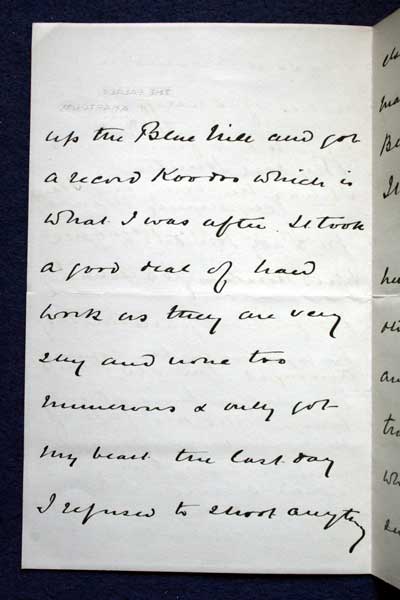 up the Blue Nile and got
a record Koodoo which is
what I was after. It took
a good deal of hard
work as they are very
shy and none too
numerous & only got
my beast the last day
I refused to shoot anything